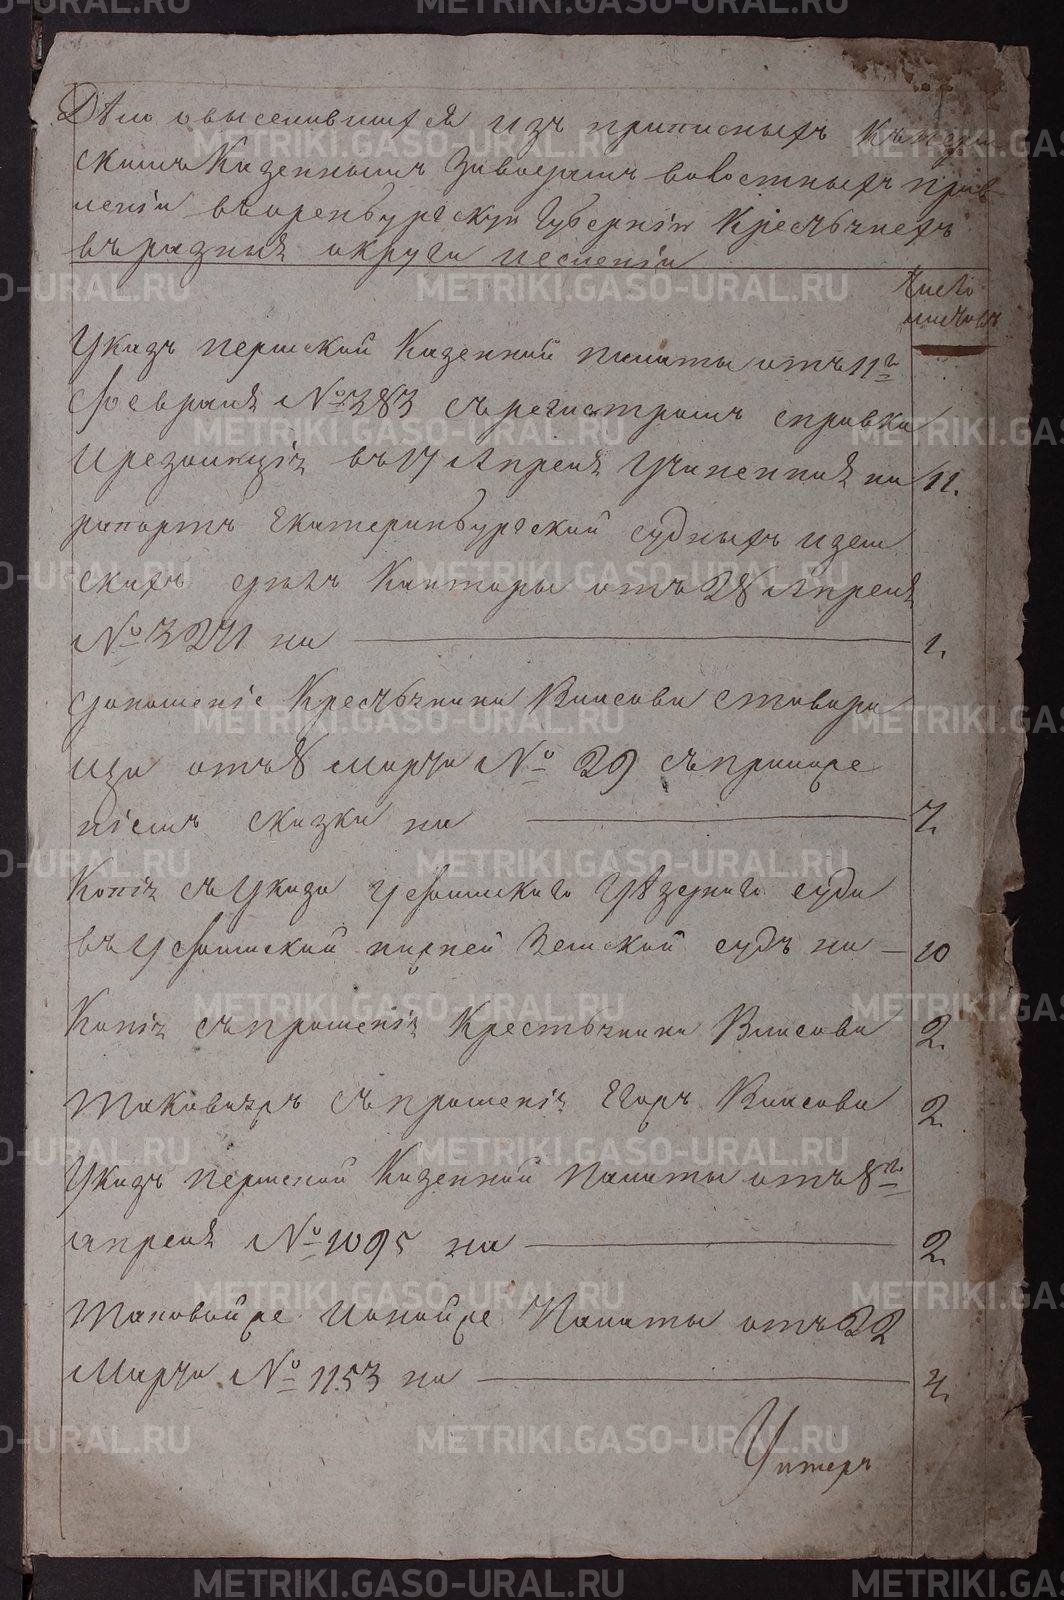 Дѣло о выселившихся изъ приписныхъ къ
скимъ Казеннымъ Заводамъ волостныхъ прав
ленiи въ оренбургскую Губернiю Крестьянехъ
въ разныя округи селенiи
Число
листовъ
Указъ пермской Казенной палаты отъ 11го
февраля № 383 съ регистромъ справки
и резолюцiи въ 17 Апреля учиненная на 11.
рапортъ Екатеринбургской судныхъ и зем
скихъ делъ Канторы отъ 28 Апреля
№ 3271 на 1.
доношенiе Крестьянина Власова с товари
щи отъ 8 марта № 29 съ приложе
нiемъ сказки на 7.
Копiя съ указа уфимскаго уѣзднаго суда
въ уфимской нижней Земской судъ на — 10
Копiя съ прошенiя Крестьянина Власова 2.
таковаяжъ съ прошенiя Егора Власова 2.
Указъ пермской Казенной Палаты отъ 8го
апреля № 1095 на 2.
таковойже и онойже Палаты отъ 22
Марта № 1153 на 4.
METRIKI.GASO-URAL.RU